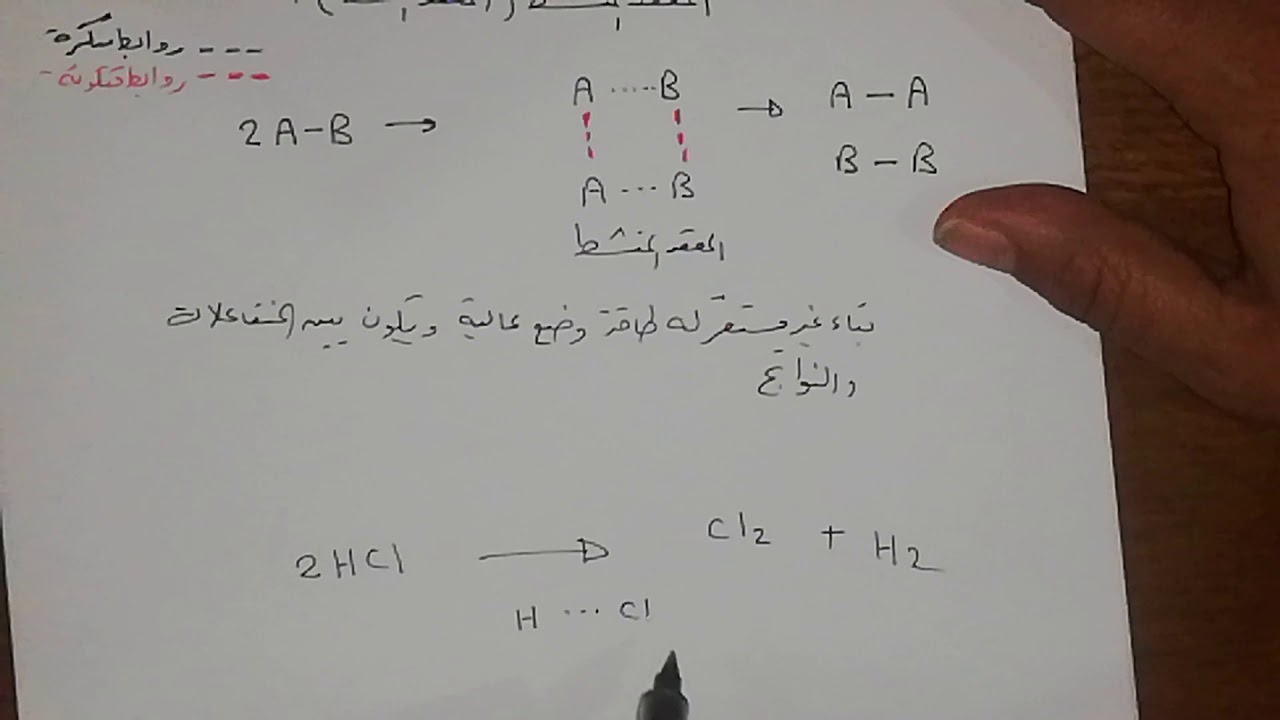 --- روابط مكسرة
--- روابط متكونة
2 A-B → A ..... B → A - A
B - B
A ... B
المعقد المنشط
بناء غير مستقر له طاقة وضع عالية ويكون بين المتفاعلات
والنواتج
2HCl → Cl2 + H2
H ... Cl